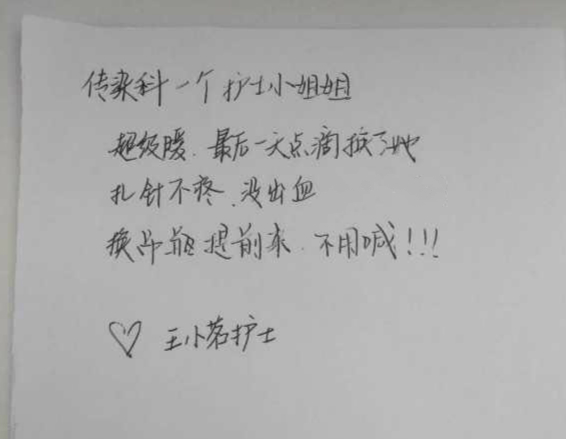 传染科一个护士小姐姐
超级暖.最后一天点滴换了她
扎针不疼.没出血
换吊瓶提前来.不用喊!!!
♡ 王小茗护士